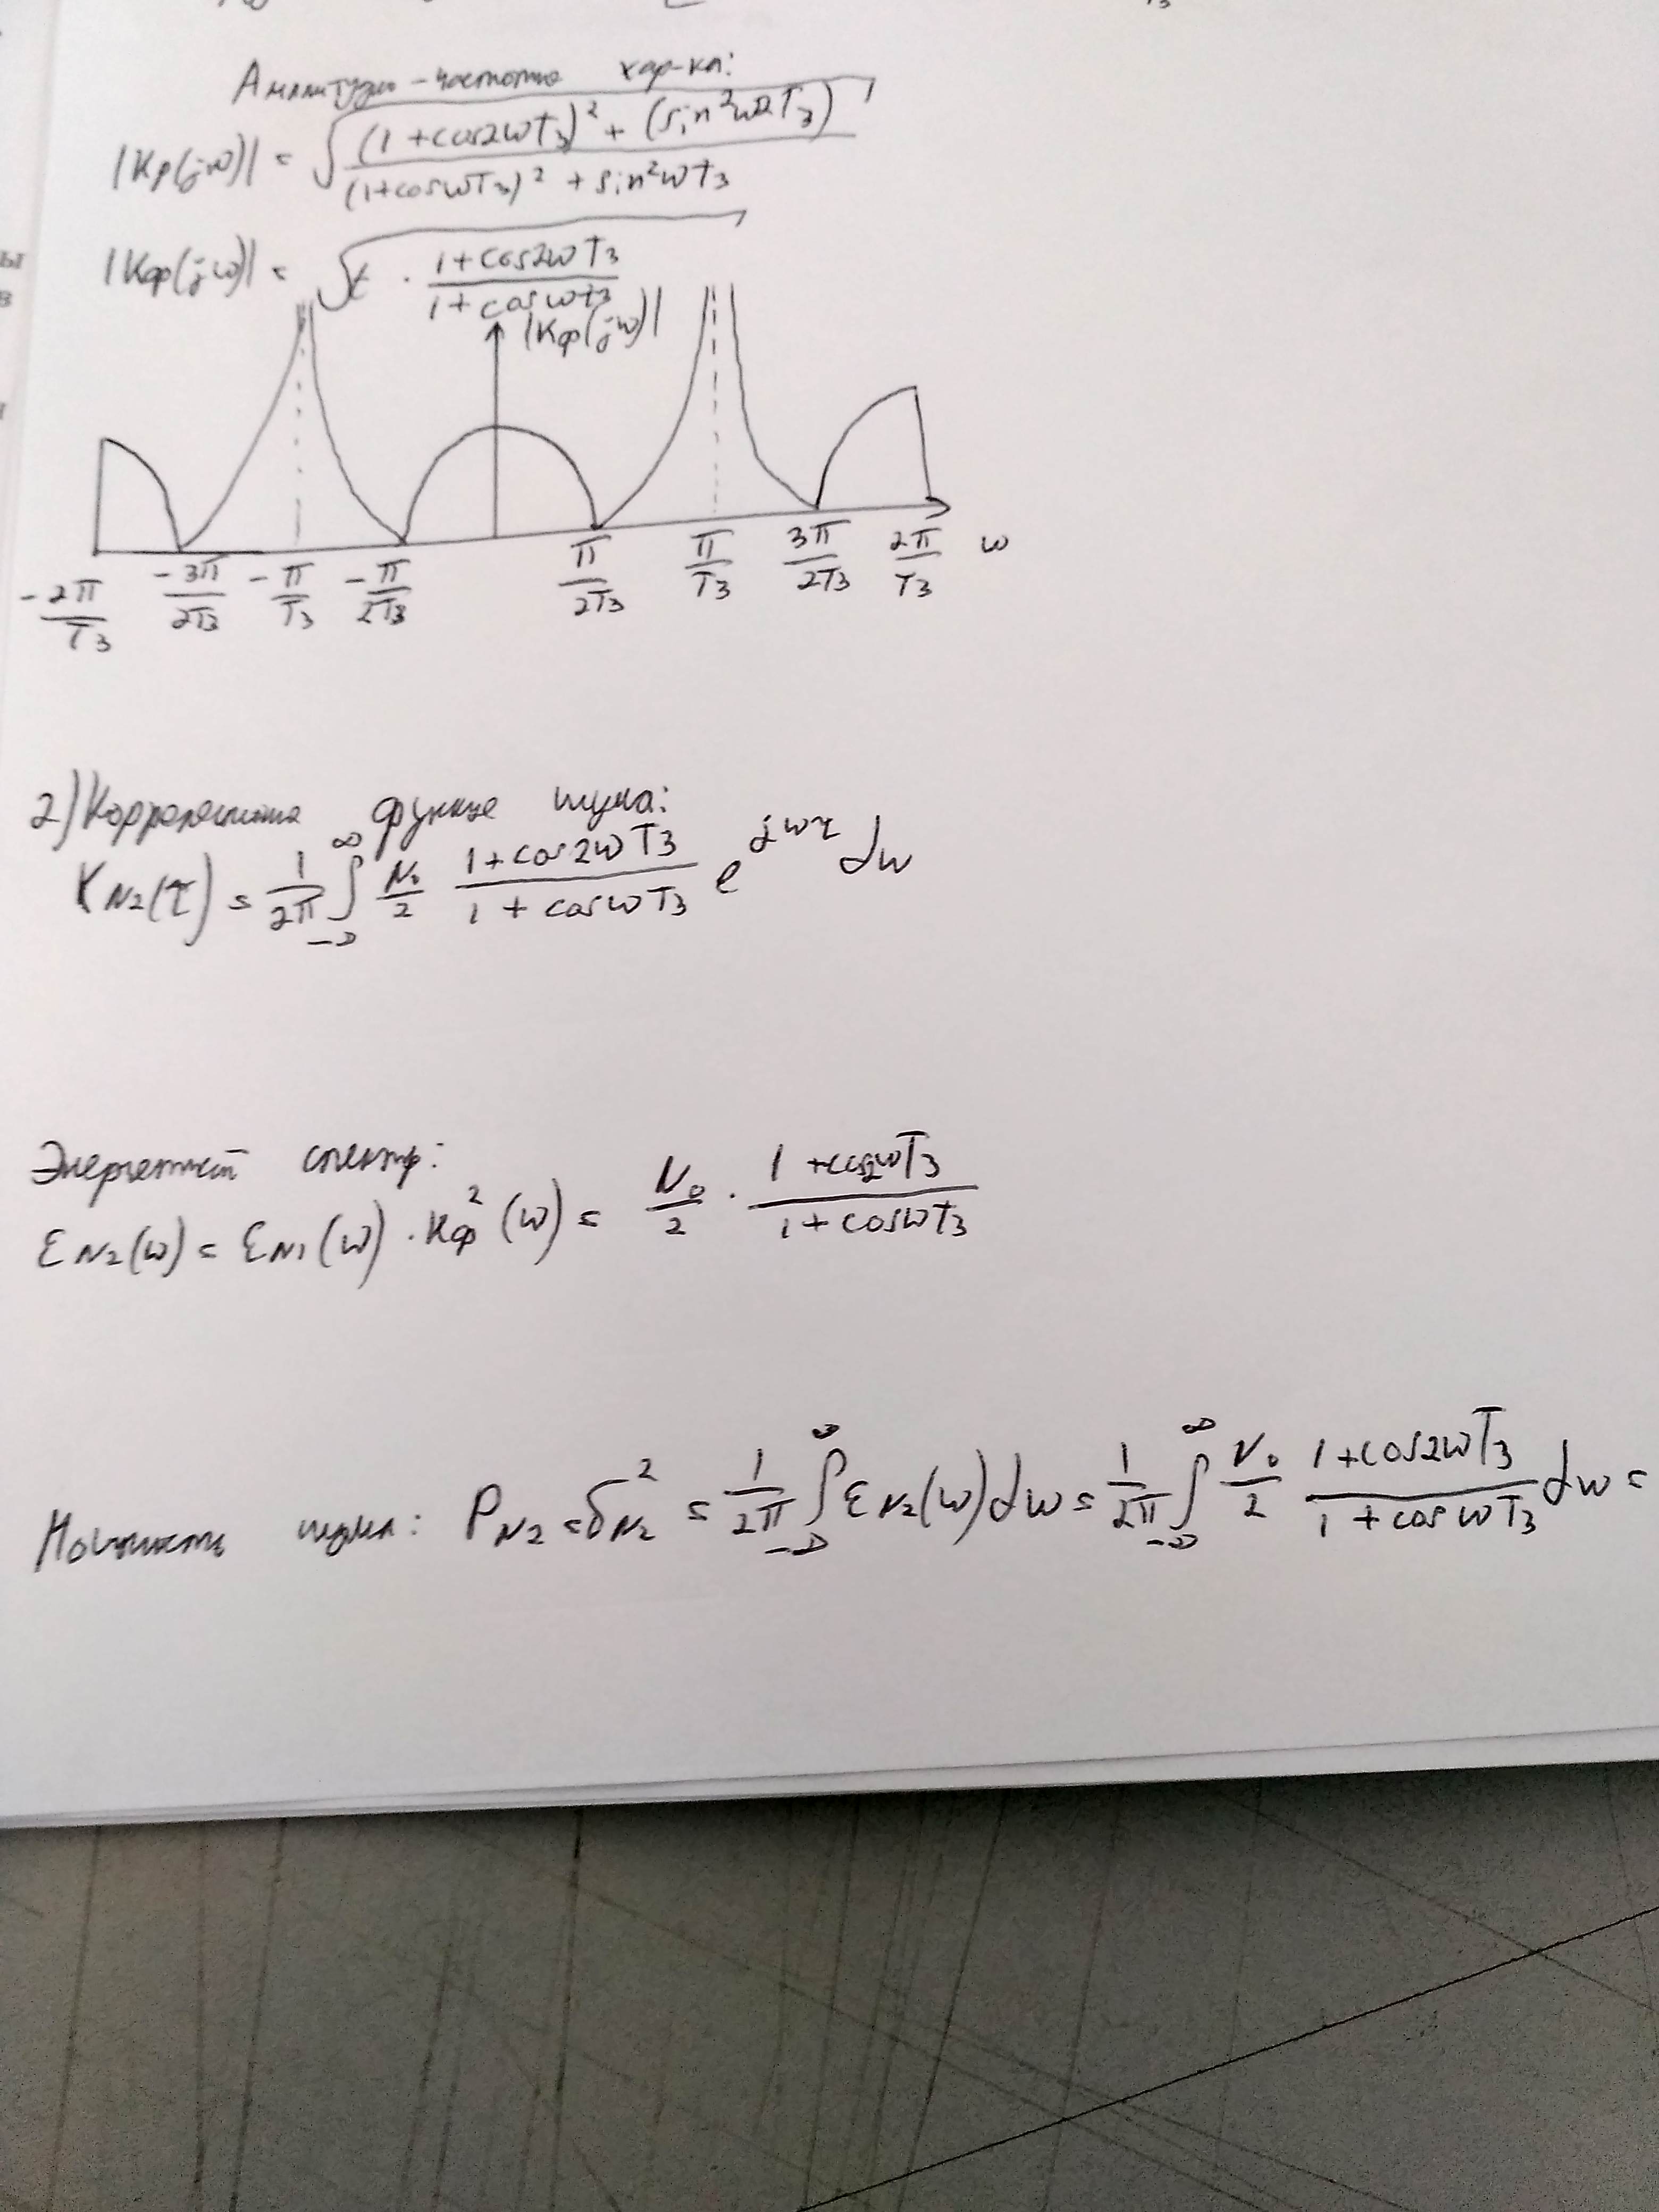 Амплитудно-частотна хар-ка:
|Kф(jω)| = √((1+cos2ωT3)² + (sin²ω2T3) / (1+cosωT3)² + sin²ωT3)
|Kф(jω)| = √(t · (1+cos2ωT3) / (1+cosωT3))
|Kф(jω)|
-2π/T3 -3π/2T3 -π/T3 -π/2T3 π/2T3 π/T3 3π/2T3 2π/T3 ω
2) Корреляционна функция шума:
K N2(τ) = 1/2π ∫_{-∞}^{∞} N0/2 (1+cos2ωT3)/(1+cosωT3) e^{jωτ} dω
Энергетический спектр:
ε N2(ω) = ε N1(ω) · Kф²(ω) = N0/2 · (1+cos2ωT3)/(1+cosωT3)
Мощность шума: P N2 = δ²N2 = 1/2π ∫_{-∞}^{∞} ε N2(ω)dω = 1/2π ∫_{-∞}^{∞} N0/2 (1+cos2ωT3)/(1+cosωT3) dω =